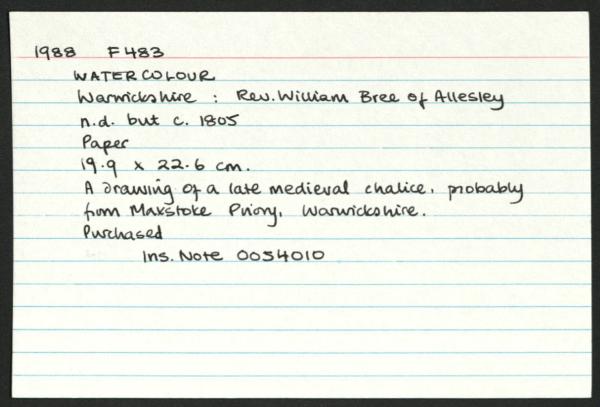 1988 F483
WATERCOLOUR
Warwickshire : Rev. William Bree of Allesley
n.d. but c. 1805
Paper
19.9 x 22.6 cm.
A drawing of a late medieval chalice, probably
from Maxstoke Priory, Warwickshire.
Purchased
Ins. Note 0054010